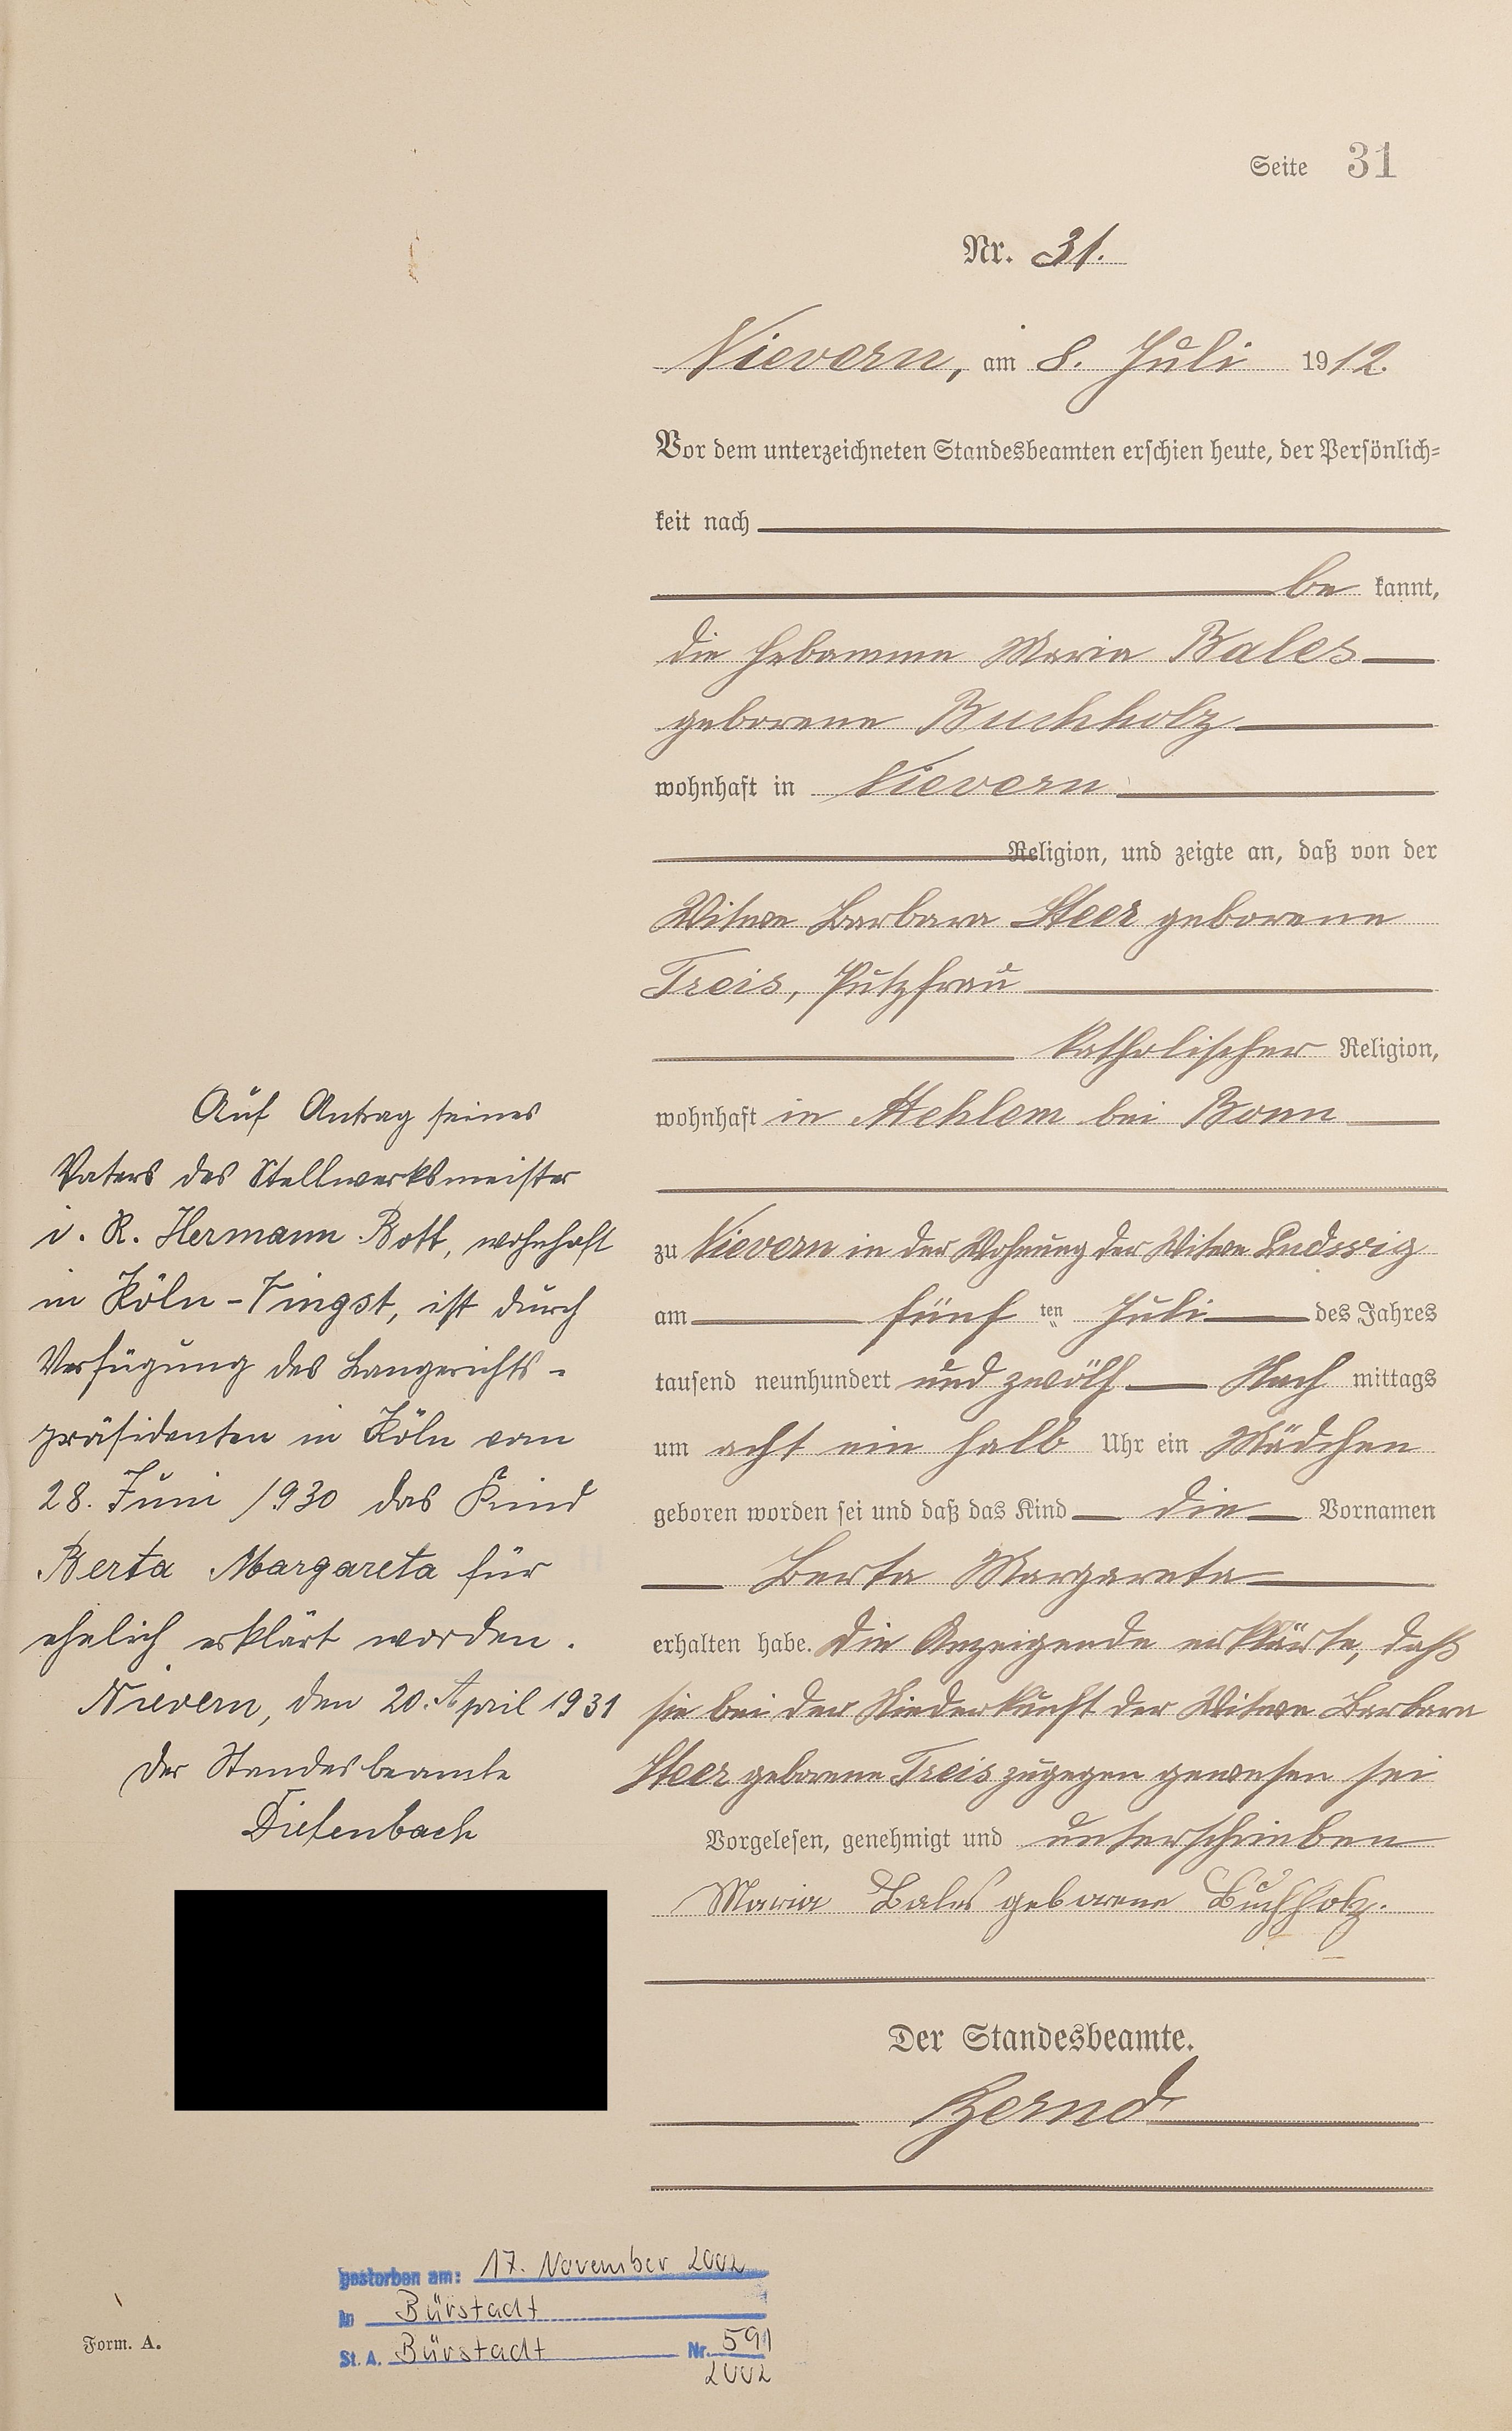 Seite 31
Nr. 31.
Nievern, am 8. Juli 1912.
Vor dem unterzeichneten Standesbeamten erschien heute, der Persönlich-
keit nach
be kannt,
die Hebamme Maria Bales
geborene Buchholz
wohnhaft in Nievern
Religion, und zeigte an, daß von der
Witwe Barbara Steer geborene
Treis, Putzfrau
katholischer Religion,
wohnhaft in Mehlem bei Bonn
zu Nievern in der Wohnung der Witwe Ludwig
am fünf ten Juli des Jahres
tausend neunhundert und zwölf Nach mittags
um acht ein halb Uhr ein Mädchen
geboren worden sei und daß das Kind die Vornamen
Berta Margareta
erhalten habe. Die Anzeigende erklärte, daß
sie bei der Niederkunft der Witwe Barbara
Steer geborene Treis zugegen gewesen sei
Vorgelesen, genehmigt und unterschrieben
Maria Bales geborene Buchholz.
Der Standesbeamte.
Bernd
Auf Antrag seines
Vaters des Stellwerksmeister
i. R. Hermann Bott, wohnhaft
in Köln-Vingst, ist durch
Verfügung des Langerichts-
präsidenten in Köln vom
28. Juni 1930 das Kind
Berta Margareta für
ehelich erklärt worden.
Nievern, den 20. April 1931
Der Standesbeamte
Diefenbach
gestorben am: 17. November 2002
in Bürstadt
St. A. Bürstadt Nr. 591
2002
Form. A.